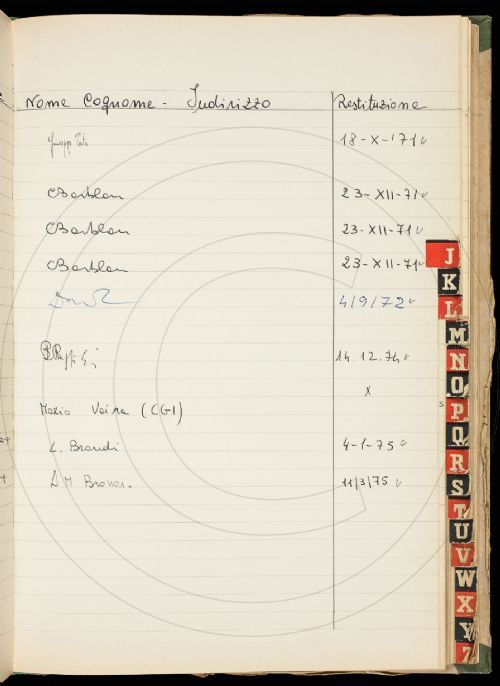 Nome Cognome - Indirizzo Restituzione
18-X-'71
CBarblan 23-XII-71
CBarblan 23-XII-71
CBarblan 23-XII-71
4/9/72
14.12.74
x
Mario (CGI)
L. Brandi 4-1-75
11/3/75
J
K
L
M
N
O
P
Q
R
S
T
U
V
W
X
Y
Z